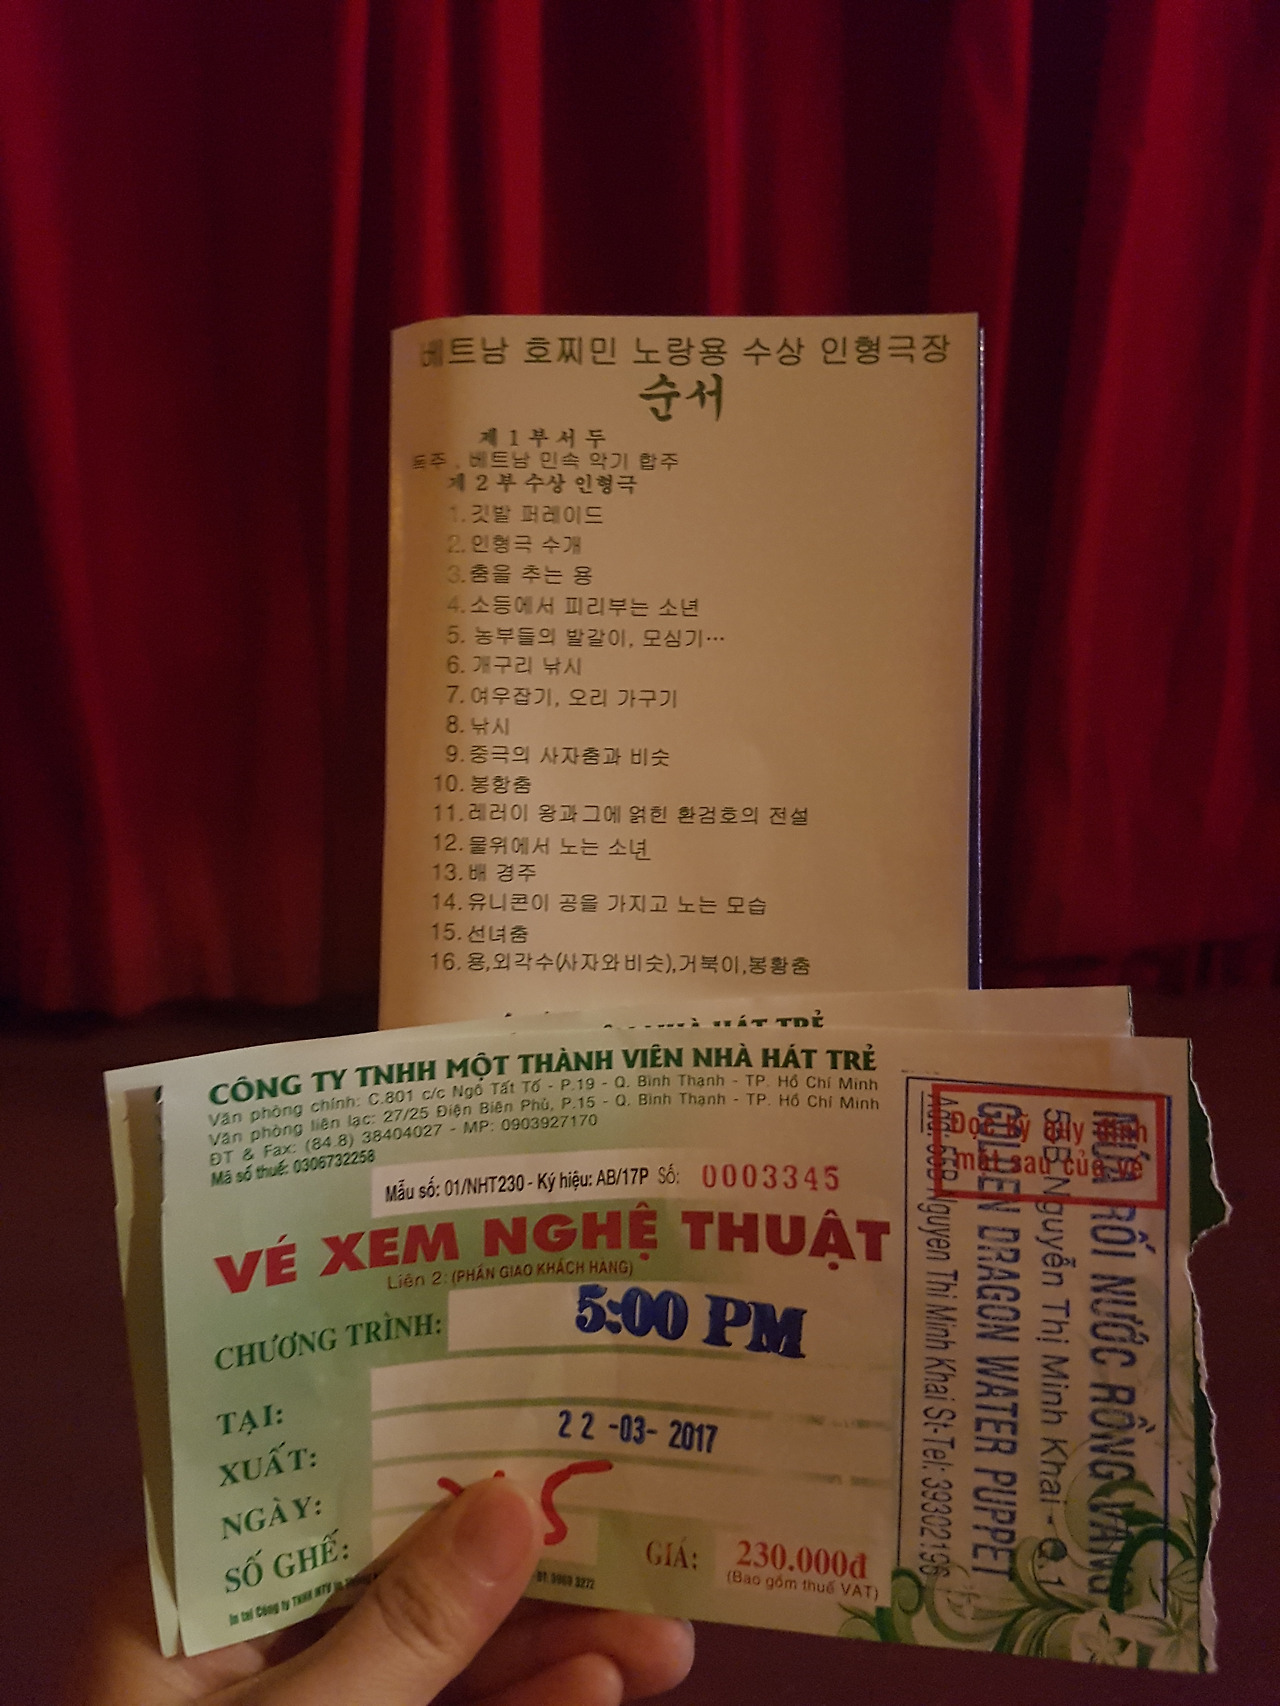 베트남 호찌민 노랑용 수상 인형극장
순서
제 1 부 서 두
독주 , 베트남 민속 악기 합주
제 2 부 수상 인형극
1. 깃발 퍼레이드
2. 인형극 수개
3. 춤을 추는 용
4. 소등에서 피리부는 소년
5. 농부들의 발갈이, 모심기…
6. 개구리 낚시
7. 여우잡기, 오리 가구기
8. 낚시
9. 중극의 사자춤과 비슷
10. 봉항춤
11. 레러이 왕과그에 얽힌 환검호의 전설
12. 물위에서 노는 소년
13. 배 경주
14. 유니콘이 공을 가지고 노는 모습
15. 선녀춤
16. 용,외각수(사자와비슷),거북이,봉황춤
NHÀ HÁT TRẺ
CÔNG TY TNHH MỘT THÀNH VIÊN NHÀ HÁT TRẺ
Văn phòng chính: C.801 c/c Ngô Tất Tố - P.19 - Q. Bình Thạnh - TP. Hồ Chí Minh
Văn phòng liên lạc: 27/25 Điện Biên Phủ, P.15 - Q. Bình Thạnh - TP. Hồ Chí Minh
ĐT & Fax: (84.8) 38404027 - MP: 0903927170
Mã số thuế: 0306732258
Mẫu số: 01/NHT230 - Ký hiệu: AB/17P Số: 0003345
VÉ XEM NGHỆ THUẬT
Liên 2: (PHẦN GIAO KHÁCH HÀNG)
CHƯƠNG TRÌNH: 5:00 PM
TẠI:
XUẤT: 22 -03- 2017
NGÀY:
SỐ GHẾ: 5
GIÁ: 230.000đ
(Bao gồm thuế VAT)
In tại Công ty TNHH MTV in
Đọc kỹ quy định
mặt sau của vé
MÚA RỐI NƯỚC RỒNG VÀNG
55B Nguyễn Thị Minh Khai - Q.1
GOLDEN DRAGON WATER PUPPET
Add: 55B Nguyen Thi Minh Khai St-Tel: 39302196